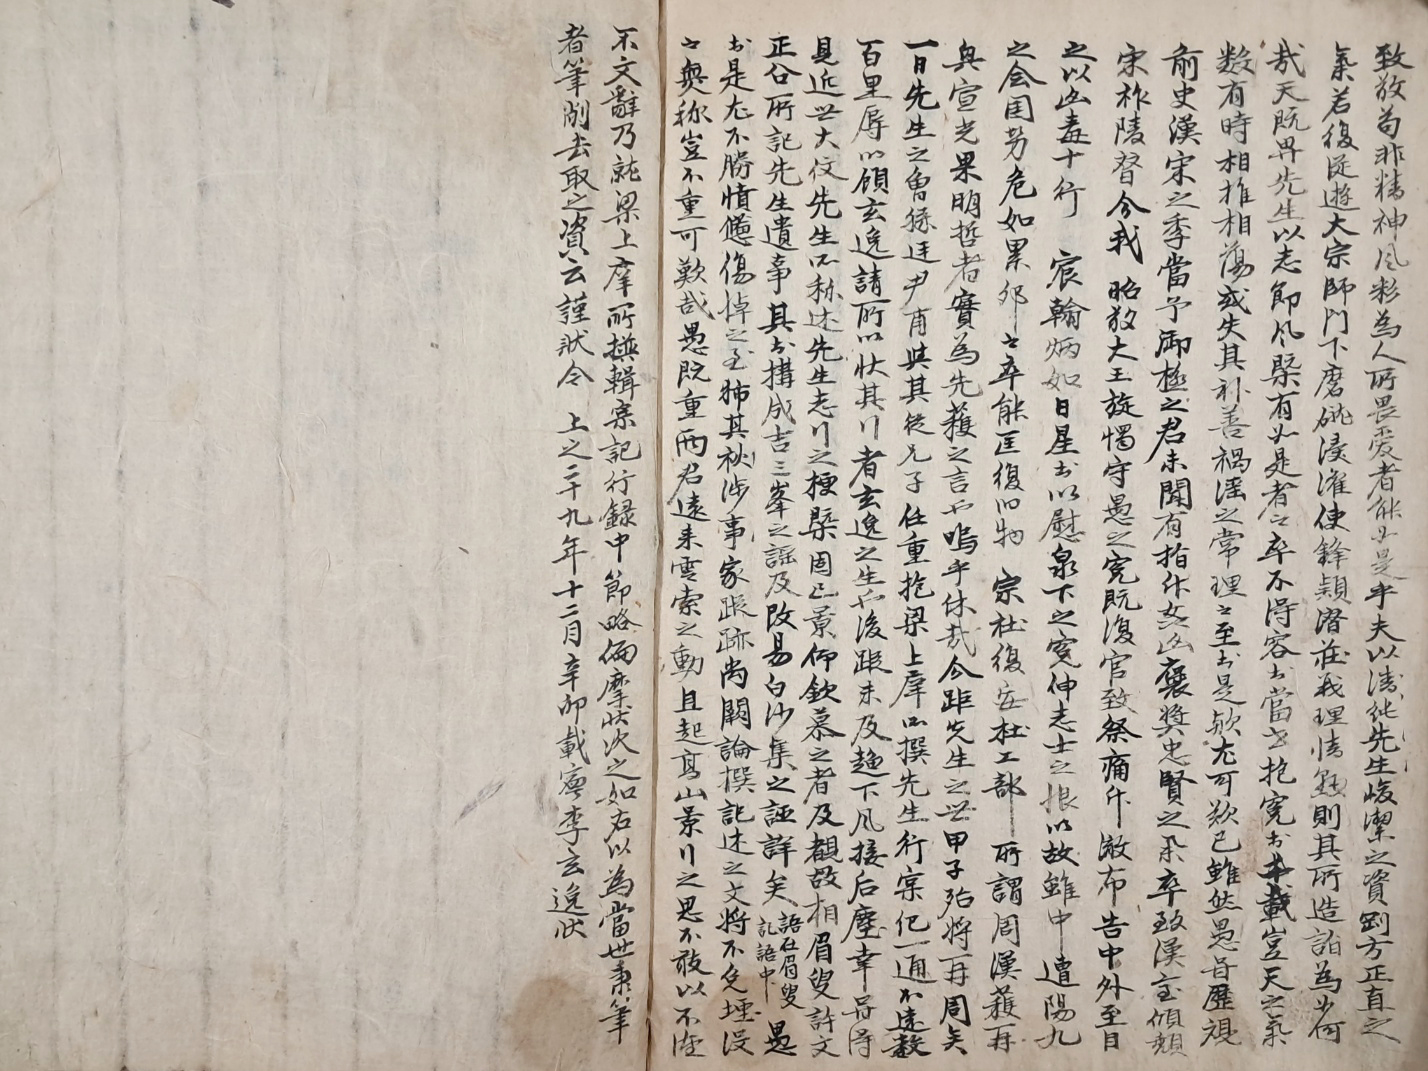 致敬苟非精神風彩為人所畏愛者能如是乎夫以淸純先生峻潔之資剛方正直之
氣若復從遊大宗師門下磨礲浸灌使鋒穎潛莊義理情熟則其所造詣為如何
哉天旣畀先生以志節風槩有如是者々卒不得容於當世抱寃於千載豈天之氣
数有時相推相蕩或失其補善禍滛之常理々至於是歟尤可歎已雖然愚昔歷觀
前史漢宋之季當予御極之君未聞有指作奸凶褒奬忠賢之柔卒致漢室傾頹
宋祚陵督今我 昭敬大王旋燭守愚之寃旣復官致祭痛斥 敵布告中外至目
之以凶毒十行 宸翰炳如日星於以慰泉下之寃伸志士之恨以故雖中 遭陽九
之会国勢危如累卵々卒能匡復旧物 宗社復安杜工部 所謂周漢獲再
興宣光果明哲者實為先獲之言也嗚乎休哉今距先生之世甲子殆將一再周矣
一日先生之曾孫廷尹甫與其從兄子任重抱梁上摩所撰先生行案纪一通不遠數
百里辱以顧玄逸請所以狀其行者玄逸之生也後跟未及趨下風接后塵幸嘗得
見近世大佼先生所称述先生志行之梗槩固已景仰欽慕之者及覩故相眉叟許文
正公所記先生遺事其於搆成吉三峯之謡及改易白沙集之誣詳矣語在眉叟記語中 愚
於是尤不勝憤惋傷悼之至狮其秋涉事家蹤跡尚闕論撰記述之文將不免堙没
々與称豈不重可歎哉愚旣重兩君遠来雩索之勤且起高山景行之思不敢以不陞
不文辭乃就梁上摩所撰輯宲記行録中節略偏摩狀次之如右以為當世秉筆
者筆削去取之資云謹狀今 上之二十九年十二月辛卯載寧李玄逸狀